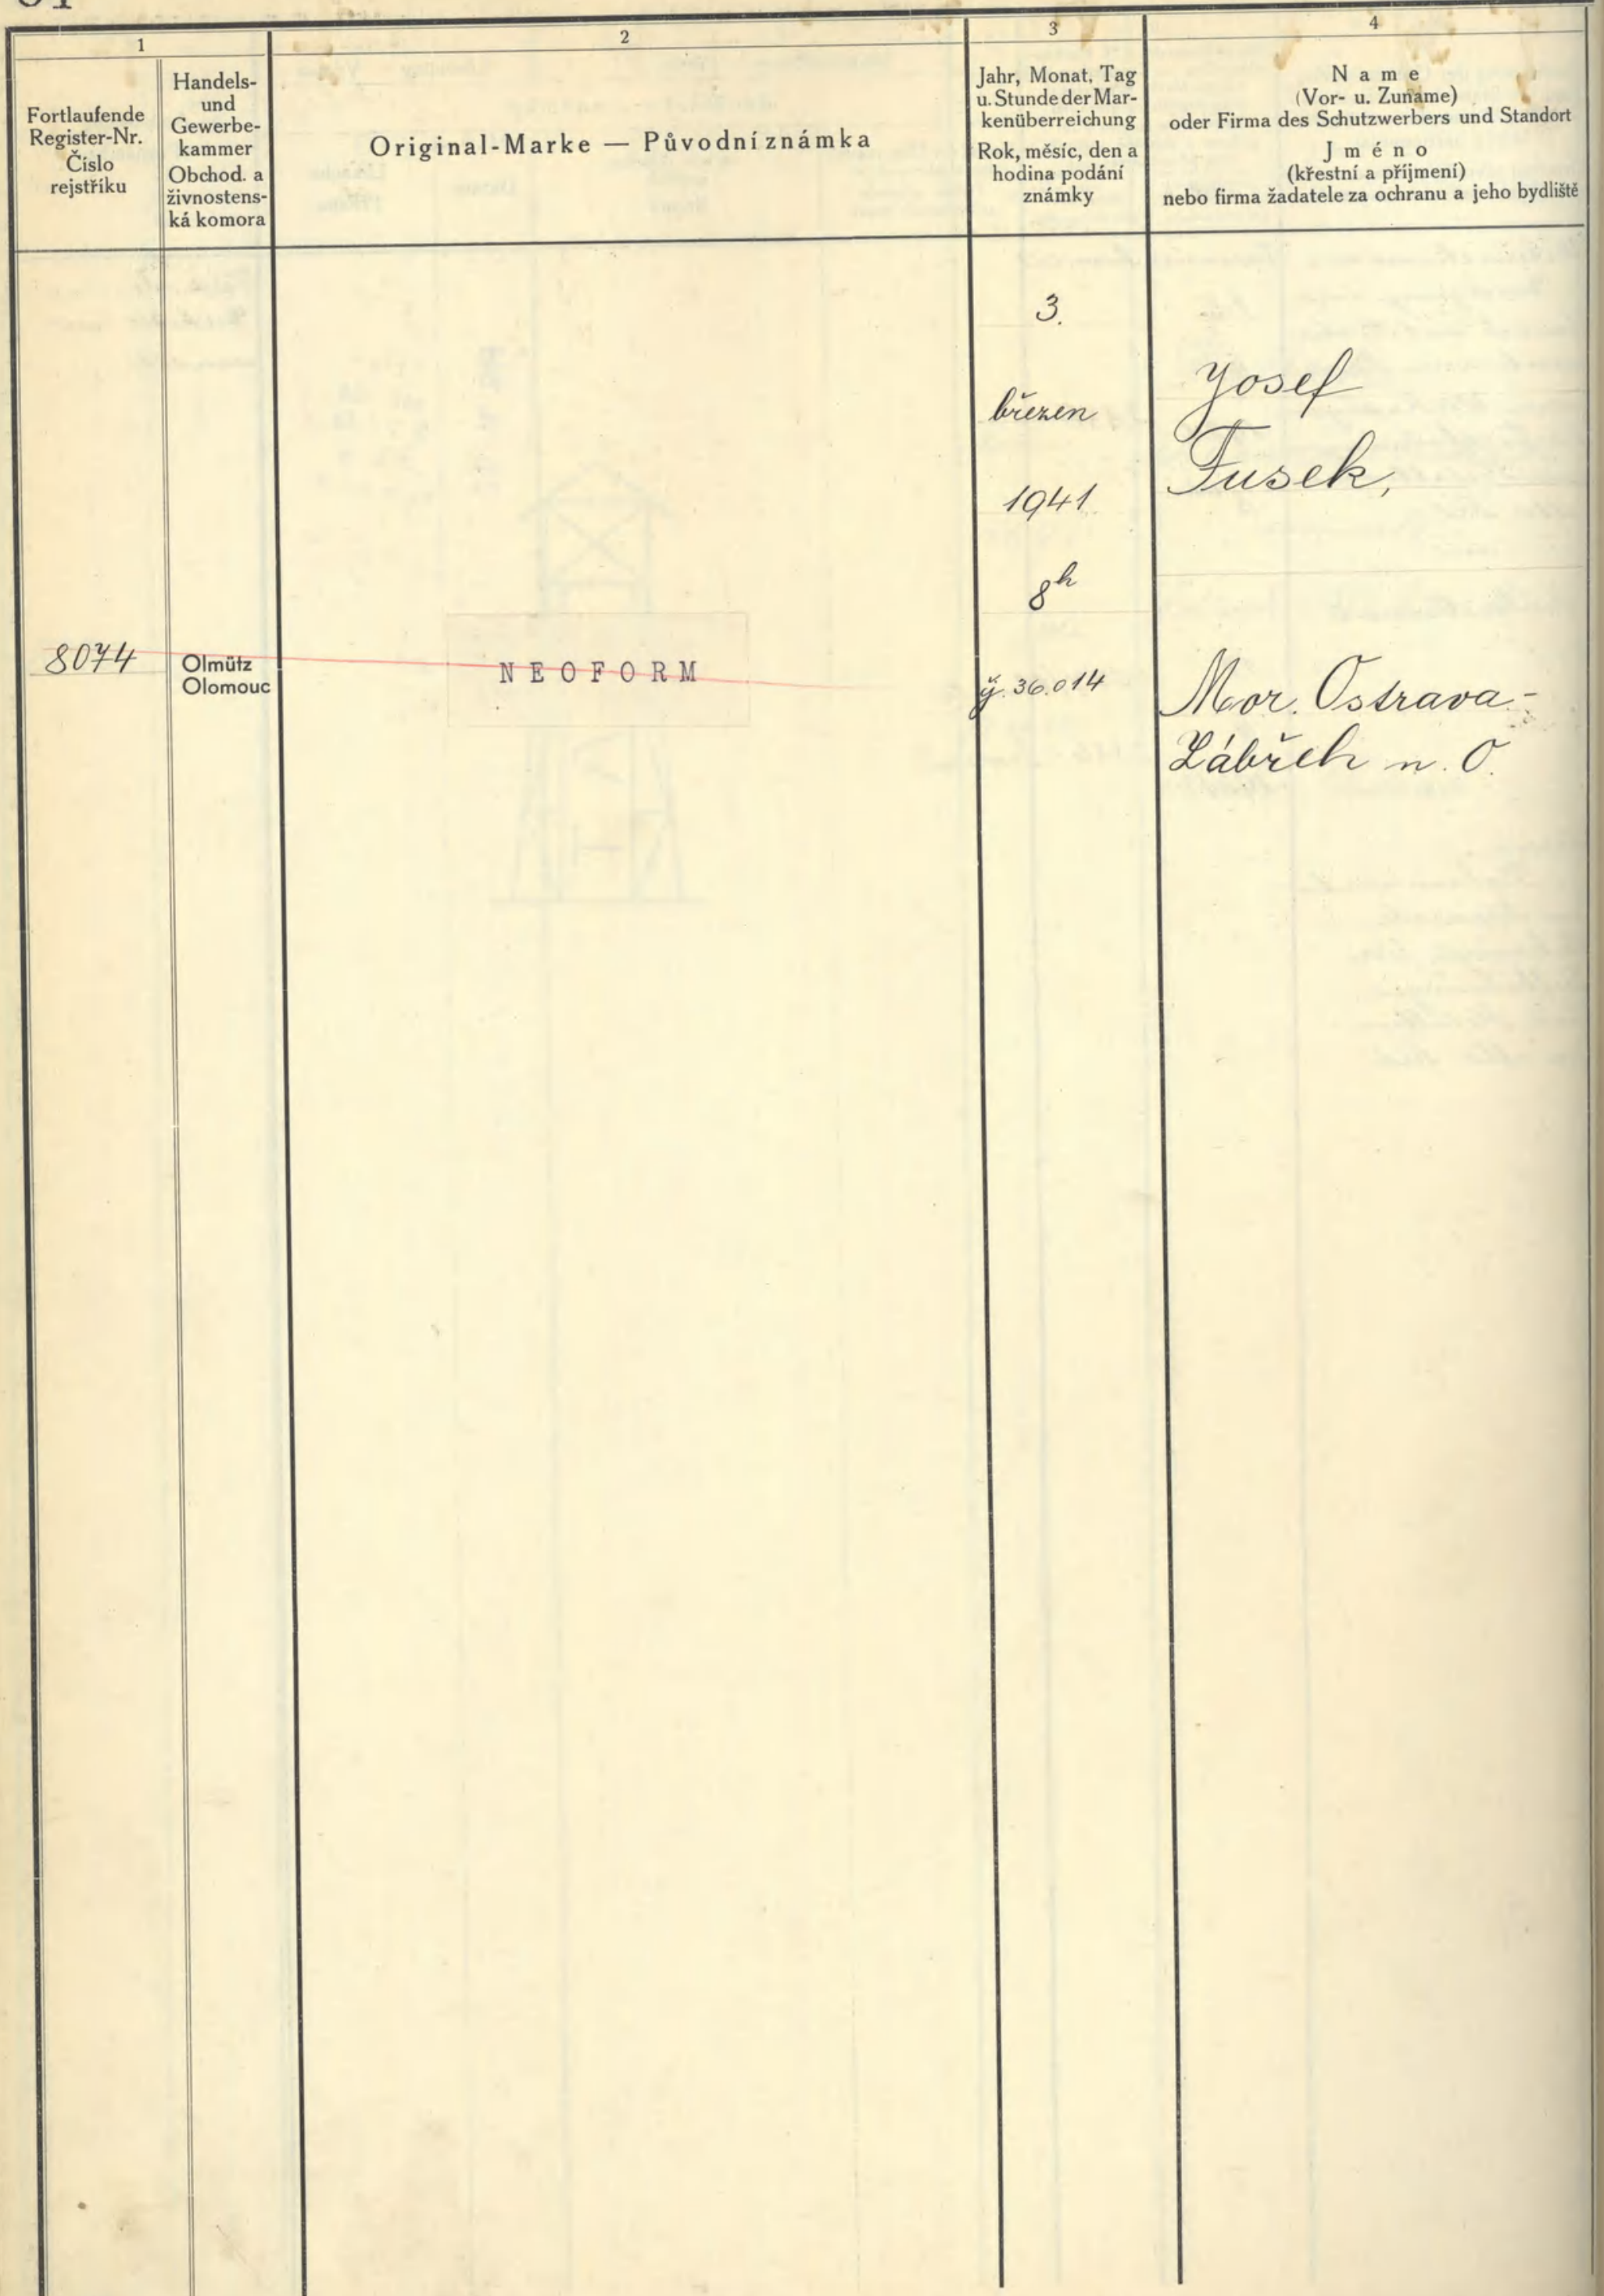 1
2
3
4
Fortlaufende
Register-Nr.
Číslo
rejstříku
Handels-
und
Gewerbe-
kammer
Obchod. a
živnostens-
ká komora
Original-Marke — Původní známka
Jahr, Monat, Tag
u. Stunde der Mar-
kenüberreichung
Rok, měsíc, den a
hodina podání
známky
Name
(Vor- u. Zuname)
oder Firma des Schutzwerbers und Standort
Jméno
(křestní a příjmení)
nebo firma žadatele za ochranu a jeho bydliště
3.
březen
1941
8h
Josef
Fusek,
8074
Olmütz
Olomouc
NEOFORM
36.014
Mor. Ostrava-
Zábřeh n. O.